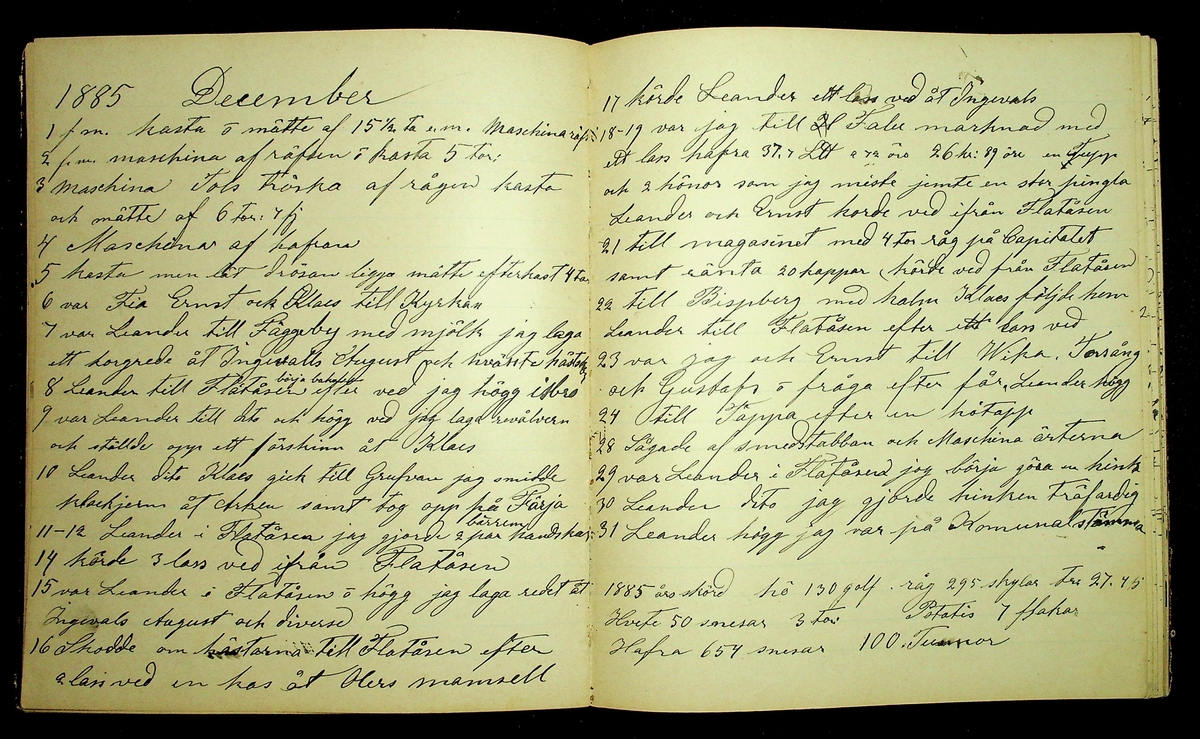 1885 December
1 f.m. kasta o mätte af 15 1/2 to e.m. Maschina räfs
2 f.m. maschina af räfsen o kasta 5 tor:
3 Maschina Tols tröska af rågen kasta
och mätte af 6 tor: 4 fj
4 Maschinar af hafran
5 kasta men lät drösan ligga mätte efterkast 4 tor
6 var Fia Ernst och Klaes till Kyrkan
7 var Leander till Fäggeby med mjölk jag laga
ett torgrede åt Ingevalls August och
8 Leander till Flatåsen börja efter ved jag högg
9 var Leander till dito och högg ved jag laga revålvern
och ställde opp ett förskinn åt Klaes
10 Leander dito Klaes gick till Grufvan jag smidde
åt samt tog opp på Färja
11-12 Leander i Flatåsen jag gjorde 2 par handskar
14 körde 3 lass ved ifrån Flatåsen
15 var Leander i Flatåsen o högg jag laga redet åt
Ingevals August och diverse
16 Skodde om hästarna till Flatåsen efter
2 lass ved en kas åt Olers mamsell
17 körde Leander ett lass ved åt Ingevals
18-19 var jag till Falu marknad med
ett lass hafra 37.7 Ltt a 72 öre 26 kr: 89 öre en
och 2 hönor som jag miste jemte en stor pingla
Leander och Ernst körde ved ifrån Flatåsen
21 till magasinet med 4 tor råg på Capitalet
samt ränta 20 kappar körde ved från Flatåsen
22 till Bispberg med halm Klaes följde hem
Leander till Flatåsen efter ett lass ved
23 var jag och Ernst till Wika. Torsång
och Gustafs o fråga efter får. Leander högg
24 till Tappa efter en hötapp
28 Sågade af smedstabban och Maschina ärterna
29 var Leander i Flatåsen jag börja göra en hink
30 Leander dito jag gjorde hinken träfärdig
31 Leander högg jag var på Komunalstämma
1885 års skörd hö 130 golf. råg 295 skylar tor 27. 4 fj
Hvete 50 snesar 3 tor Potatis 7
Hafra 654 snesar 100. Tunnor